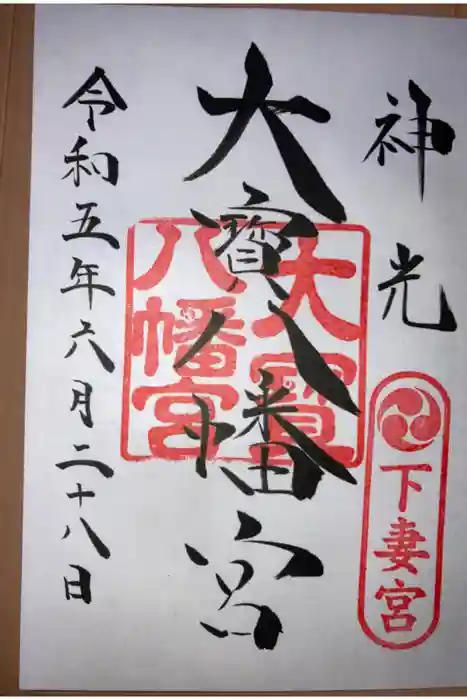 神光
下妻宮
大寶八幡宮
大寶
八幡宮
令和五年六月二十八日